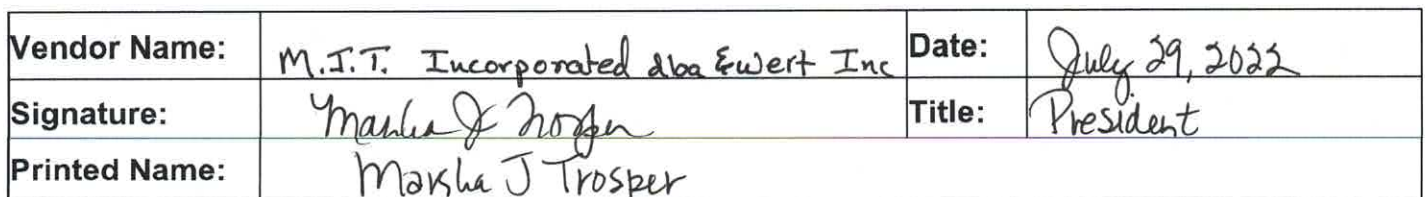 Vendor Name: M.J.T. Incorporated dba Ewert Inc Date: July 29, 2022
Signature: Marsha J Trosper Title: President
Printed Name: Marsha J Trosper